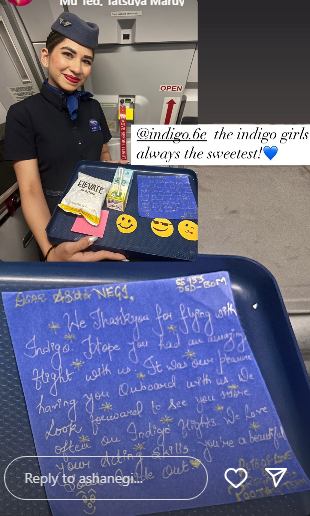 Mu Ted, Tatsuya Maruy
OPEN
@indigo.6e the indigo girls
always the sweetest!💙
ELEVATE
Dear Asha Negi,
DED - BOM
We Thankyou for flying with
Indigo. Hope you had an amazing
flight with us. It was our pleasure
having you Onboard with us. We
look forward to see you more
often on Indigo flights. We love
your Acting skills you're a beautiful
Inside Out
Reply to ashanegi...